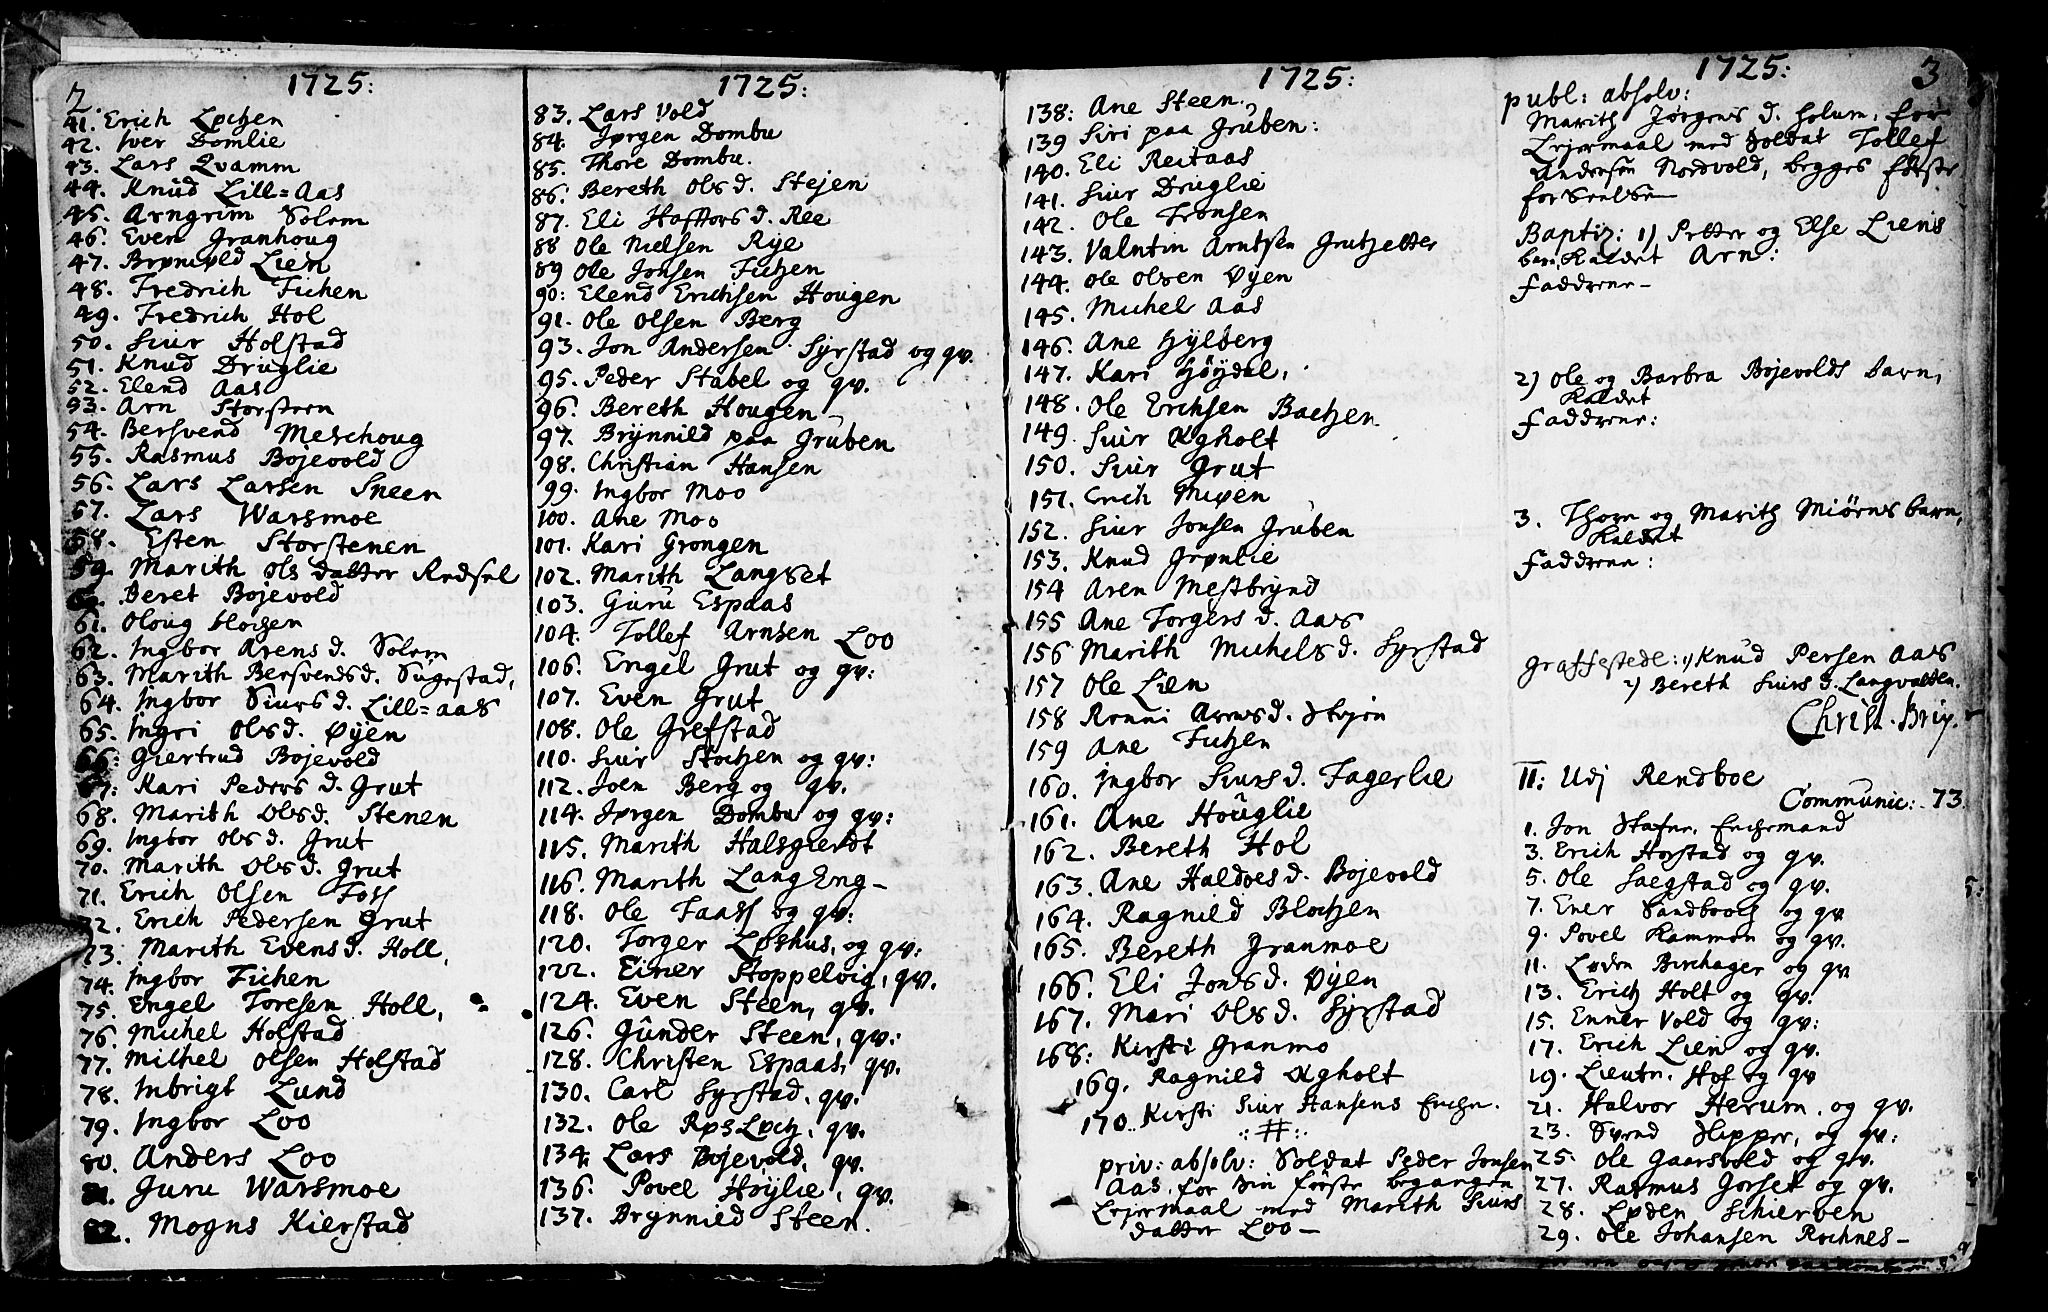 2.
1725:
41. Erich Løchen
42. Iver Domlie
43. Lars Qvamm
44. Knud Lill=Aas
45. Arngrim Solem
46. Even Granhoug
47. Brønvold Lien
48. Fredrich Fichen
49. Fredrich Hol
50. Siur Holstad
51. Knud Druglie
52. Elend Aas
53. Arn Storsteen
54. Bersvend Meschoug
55. Rasmus Bojevold
56. Lars Larsen Sneen
57. Lars Warsmoe
58. Esten Storstenen
59. Marith Ols datter Rødsel
Beret Bojevold
61. Oloug
62. Ingbor Arens d. Solem
63. Marith Bersvends d. Sugestad,
64. Ingbor Siurs d. Lill=aas
65. Ingri Ols d. Øyen
66: Giertrud Bojevold
67: Kari Peders d. Grut
68. Marith Ols d. Stenen
69. Ingbor Ols d. Grut
70. Marith Ols d. Grut
71. Erich Olsen Foss
72. Erich Pedersen Grut
73. Marith Evens d. Holl,
74. Ingbor Fichen
75. Engel Toresen Holl,
76. Michel Holstad
77. Michel Olsen Holstad
78. Inbrigt Lund
79. Ingbor Loo
80. Anders Loo
81. Juru Warsmoe
82. Mogns Kierstad
1725:
83. Lars Vold
84. Jørgen Dombu
85. Thore Dombu.
86. Bereth Ols d. Stejen
87. Eli Haffors d. Ree
88 Ole Nielsen Rye
89 Ole Jonsen Fichen
90: Elend Erichsen Hougen
91. Ole Olsen Berg
93. Jon Andersen Syrstad og qv.
95. Peder Stabel og qv.
96. Bereth Hougen
97. Brynnild paa Gruben
98. Christian Hansen
99. Ingbor Moo
100. Ane Moo
101. Kari Grongen
102. Marith Langset
103. Guru Espaas
104. Tollef Arnsen Loo
106. Engel Grut og qv:
107. Even Grut
108. Ole Grefstad
110. Siur Stochen og qv:
112. Joen Berg og qv.
114. Jørgen Dombu og qv:
115. Marith Halsgierdt
116. Marith Lang Eng-
118. Ole Faass og qv:
120. Torger Løshus, og qv:
122. Einer Stoppelvig, qv.
124. Even Steen, qv.
126. Gunder Steen, qv.
128. Christen Espaas, qv.
130. Carl Syrstad, qv.
132. Ole Røs Løch, qv.
134. Lars Bojevold, qv.
136. Povel Høylie, qv.
137. Brynnild Steen.
1725:
138: Ane Steen.
139 Siri paa Gruben:
140. Eli Reitaas
141. Siur Druglie
142. Ole Tronsen
143. Valentin Arntsen Grutsetter
144. Ole Olsen Øyen
145. Michel Aas
146. Ane Hylberg
147. Kari Høydal,
148. Ole Erichsen Bachen
149. Siur Øgholt
150. Siur Grut
151. Erich Miøen
152. Siur Jonsen Gruben
153. Knud Grønlie
154 Aren Mestbrynd
155 Ane Torgers d. Aas
156 Marith Michels d. Syrstad
157 Ole Lien
158 Ronni Arens d. Stejen
159 Ane Fichen
160. Ingbor Siurs d. Fagerlie
161. Ane Houglie
162. Bereth Hol
163. Ane Haldoes d. Bojevold
164. Ragnild Blochen
165. Bereth Granmoe
166. Eli Jons d. Øyen
167. Mari Ols d. Syrstad
168: Kirsti Granmo
169. Ragnild Øgholt
170. Kirsti Siur Hansens Enche.
:#:
priv: absolv: Soldat Peder Jonsen
Aas, for sin første begangen
Lejermaal med Marith Siurs
datter Loo-
1725:
3
publ: absolv:
Marith Jørgens d. Holum, for
Lejermaal med Soldat Tollef
Andersen Nordvold, begges første
forseelse
Baptiz: 1) Petter og Else Liens
barn, kaldet Arn:
Faddrene-
2) Ole og Barbra Bojevolds barn,
kaldet
Faddrene:
3. Thorn og Marith Miøens barn,
kaldet
Faddrene:
Graffestede: 1) Knud Persen Aas
2) Bereth Siurs d. Langvolden.
Christ. Brix.
II: Udj Rendboe
Communic: 73
1. Jon Stafne, Enchemand
3. Erich Horstad og qv.
5. Ole Saegstad og qv.
7. Ener Sandbooch og qv
9. Povel Kammen og qv.
11. Løden Birchager og qv
13. Erich Holt og qv.
15. Enner Vold og qv:
17. Erich Lien og qv.
19. Lieutn. Hof og qv
21. Halvor Herum, og qv.
23. Svend Slepper, og qv:
25. Ole Gaarsvold og qv.
27. Rasmus Gorset og qv.
28. Løden Schierven
29. Ole Johansen Rochnes-